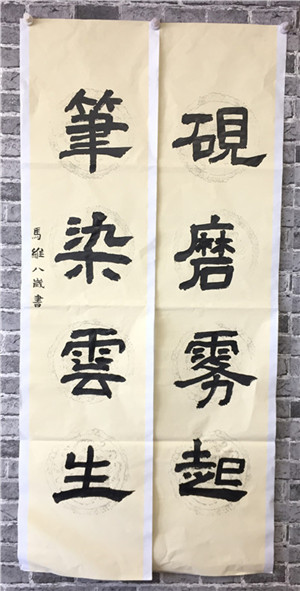 硯磨霧起
筆染雲生
馬維八歲書